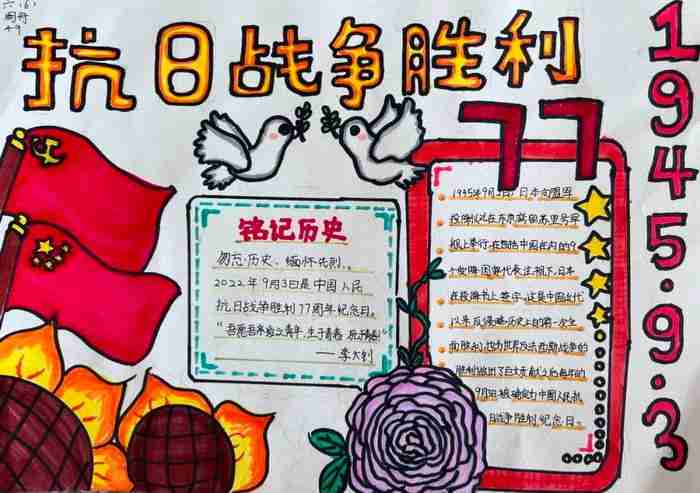 六(6)
49
抗日战争胜利
77
1945.9.3
铭记历史
勿忘历史、缅怀先烈。
2022年9月3日是中国人民
抗日战争胜利77周年纪念日。
——李大钊
日本向盟军
投降仪式在东京湾的苏里号军
舰上举行。在包括中国在内的9
个受降国家代表注视下,日本
在投降书上签字。这是中国近代
以来反侵略历史上的第一次全
面胜利,也为世界反法西斯战争的
胜利做出了巨大贡献。之后每年的
9月3日被确定为中国人民抗
日战争胜利纪念日。